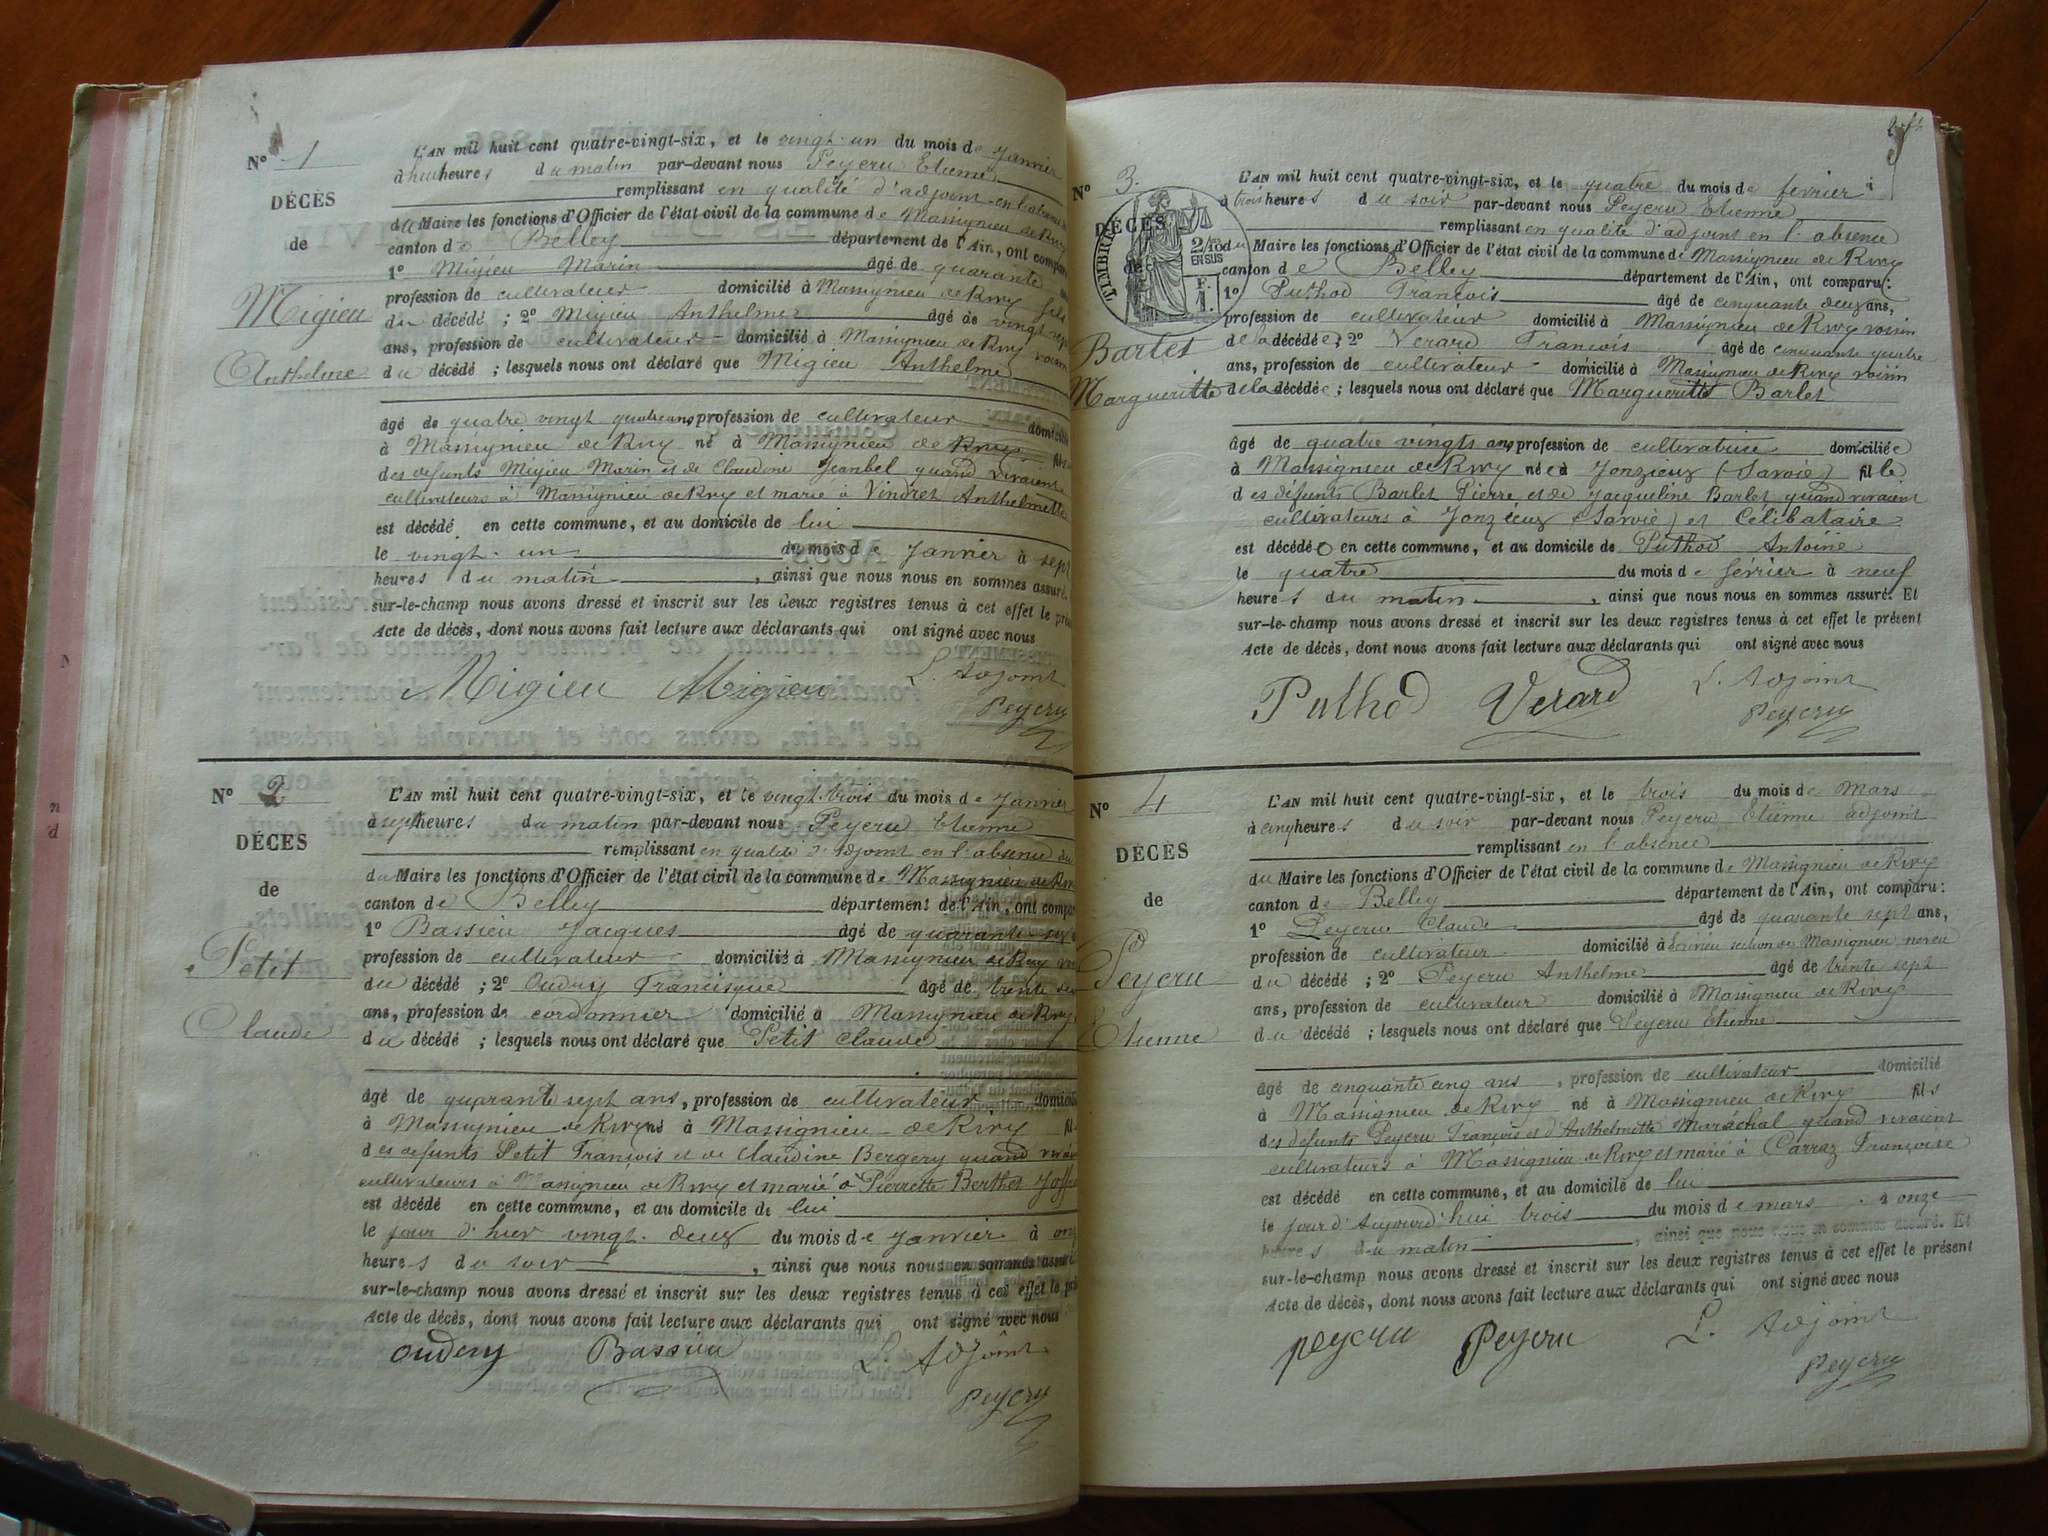 N° 1
DÉCÈS
de
Migieu
Anthelme
L'AN mil huit cent quatre-vingt-six, et le vingt-un du mois de Janvier
à huit heures du matin par-devant nous Peyeru Etienne
remplissant en qualité d'adjoint en l'absence
du Maire les fonctions d'Officier de l'état civil de la commune de Massignieu de Rivy
canton de Belley département de l'Ain, ont compar
1° Migieu Marin âgé de quarante
profession de cultivateur domicilié à Massignieu de Rivy fils
du décédé ; 2° Migieu Anthelme âgé de vingt sept
ans, profession de cultivateur domicilié à Massignieu de Rivy voisin
du décédé ; lesquels nous ont déclaré que Migieu Anthelme
âgé de quatre vingt quatre ans profession de cultivateur domicilié
à Massignieu de Rivy né à Massignieu de Rivy fils
des défunts Migieu Marin et de Claudine Jeanbel quand vivaient
cultivateurs à Massignieu de Rivy et marié à Vindret Anthelmette
est décédé en cette commune, et au domicile de lui
le vingt-un du mois de Janvier à sept
heures du matin, ainsi que nous nous en sommes assuré.
sur-le-champ nous avons dressé et inscrit sur les deux registres tenus à cet effet le prés
Acte de décès, dont nous avons fait lecture aux déclarants qui ont signé avec nous
Migieu Migieu L. Adjoint
Peyeru
N° 2
DÉCES
de
Petit
Claude
L'AN mil huit cent quatre-vingt-six, et le vingt-trois du mois de Janvier
à sept heures du matin par-devant nous Peyeru Etienne
remplissant en qualité d'Adjoint en l'absence du
du Maire les fonctions d'Officier de l'état civil de la commune de Massignieu de Riv
canton de Belley département de l'Ain, ont compar
1° Bassieu Jacques âgé de quarante six
profession de cultivateur domicilié à Massignieu de Rivy
du décédé ; 2° Oudery Francisque âgé de trente
ans, profession de cordonnier domicilié à Massignieu de Rivy
du décédé ; lesquels nous ont déclaré que Petit Claude
âgé de quarante sept ans, profession de cultivateur domicilié
à Massignieu de Rivy né à Massignieu de Rivy fil
des défunts Petit François et de Claudine Bergery quand viv
cultivateurs à Massignieu de Rivy et marié à Pierrette Berthet
est décédé en cette commune, et au domicile de lui
le jour d'hier vingt-deux du mois de janvier à onz
heures du soir, ainsi que nous nous en sommes assuré
sur-le-champ nous avons dressé et inscrit sur les deux registres tenus à cet effet le pré
Acte de décès, dont nous avons fait lecture aux déclarants qui ont signé avec nous
oudery Bassieu L. Adjoint
Peyeru
N° 3.
DÉCÈS
de
TIMBRE
2/10
EN SUS
F.
1.
Barlet
Margueritte
L'AN mil huit cent quatre-vingt-six, et le quatre du mois de février
à trois heures du soir par-devant nous Peyeru Etienne
remplissant en qualité d'adjoint en l'absence
du Maire les fonctions d'Officier de l'état civil de la commune de Massignieu de Rivy
canton de Belley département de l'Ain, ont comparu :
1° Puthod François âgé de cinquante deux ans,
profession de cultivateur domicilié à Massignieu de Rivy voisin
de la décédée ; 2° Verard François âgé de cinquante quatre
ans, profession de cultivateur domicilié à Massignieu de Rivy voisin
de la décédée ; lesquels nous ont déclaré que Margueritte Barlet
âgé de quatre vingts ans profession de cultivatrice domiciliée
à Massignieu de Rivy née à Jonzieux (Savoie) fille
des défunts Barlet Pierre et de Jacqueline Barlet quand vivaient
cultivateurs à Jonzieux (Savoie) et Célibataire
est décédée en cette commune, et au domicile de Puthod Antoine
le quatre du mois de février à neuf
heures du matin, ainsi que nous nous en sommes assuré. Et
sur-le-champ nous avons dressé et inscrit sur les deux registres tenus à cet effet le présent
Acte de décès, dont nous avons fait lecture aux déclarants qui ont signé avec nous
Puthod Verard L. Adjoint
Peyeru
N° 4
DÉCÈS
de
Peyeru
Etienne
L'AN mil huit cent quatre-vingt-six, et le trois du mois de Mars
à cinq heures du soir par-devant nous Peyeru Etienne adjoint
remplissant en l'absence
du Maire les fonctions d'Officier de l'état civil de la commune de Massignieu de Rivy
canton de Belley département de l'Ain, ont comparu :
1° Peyeru Claude âgé de quarante sept ans,
profession de cultivateur domicilié à section de Massignieu neveu
du décédé ; 2° Peyeru Anthelme âgé de trente sept
ans, profession de cultivateur domicilié à Massignieu de Rivy
du décédé ; lesquels nous ont déclaré que Peyeru Etienne
âgé de cinquante cinq ans, profession de cultivateur domicilié
à Massignieu de Rivy né à Massignieu de Rivy fils
des défunts Peyeru François et d'Anthelmette Maréchal quand vivaient
cultivateurs à Massignieu de Rivy et marié à Carraz Françoise
est décédé en cette commune, et au domicile de lui
le jour d'Aujourd'hui trois du mois de mars à onze
heures du matin, ainsi que nous nous en sommes assuré. Et
sur-le-champ nous avons dressé et inscrit sur les deux registres tenus à cet effet le présent
Acte de décès, dont nous avons fait lecture aux déclarants qui ont signé avec nous
peyeru Peyeru L. Adjoint
Peyeru